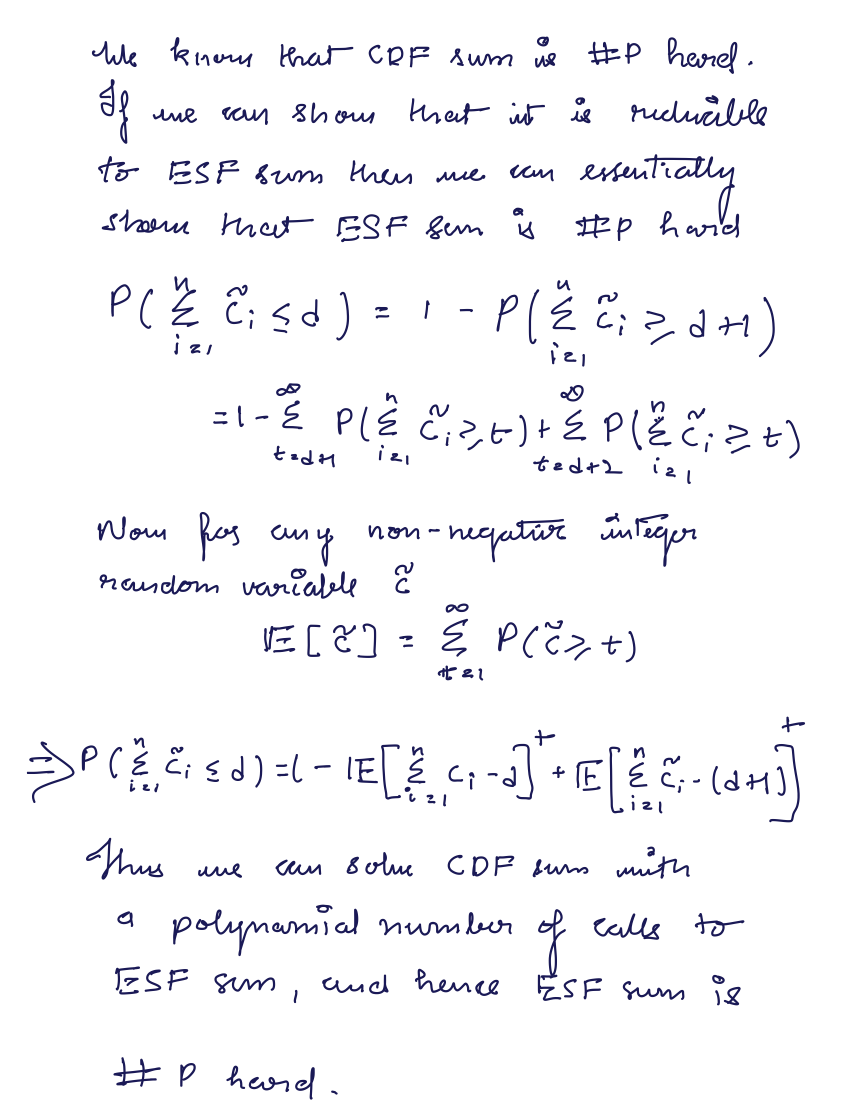 We know that CDF sum is #P hard.
If we can show that it is reducible
to ESF sum then we can essentially
show that ESF sum is #P hard
P( ∑_{i=1}^{n} c̃_i ≤ d ) = 1 - P( ∑_{i=1}^{n} c̃_i ≥ d+1 )
= 1 - ∑_{t=d+1}^{∞} P( ∑_{i=1}^{n} c̃_i ≥ t ) + ∑_{t=d+2}^{∞} P( ∑_{i=1}^{n} c̃_i ≥ t )
Now for any non-negative integer
random variable c̃
𝔼[c̃] = ∑_{t=1}^{∞} P(c̃ ≥ t)
⇒ P( ∑_{i=1}^{n} c̃_i ≤ d ) = 1 - 𝔼[ ∑_{i=1}^{n} c_i - d ]^+ + 𝔼[ ∑_{i=1}^{n} c̃_i - (d+1) ]^+
Thus we can solve CDF sum with
a polynamial number of calls to
ESF sum, and hence ESF sum is
# P hard.